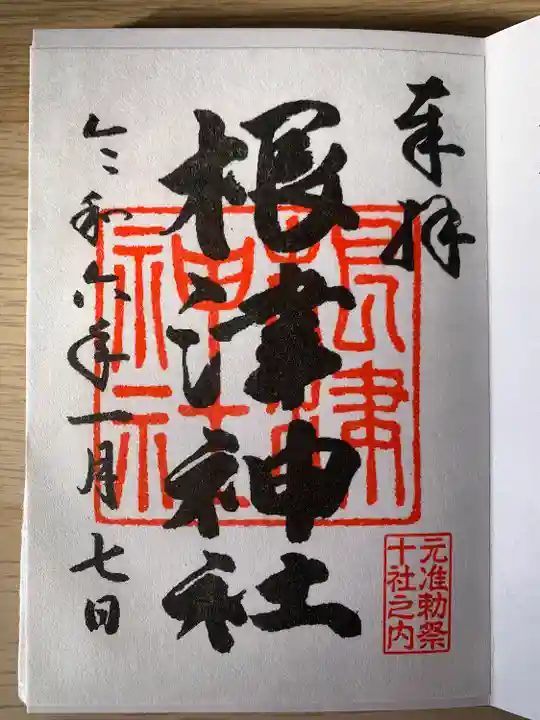 奉拝
根津神社
令和六年一月七日
根津
神社
元准勅祭
十社之内